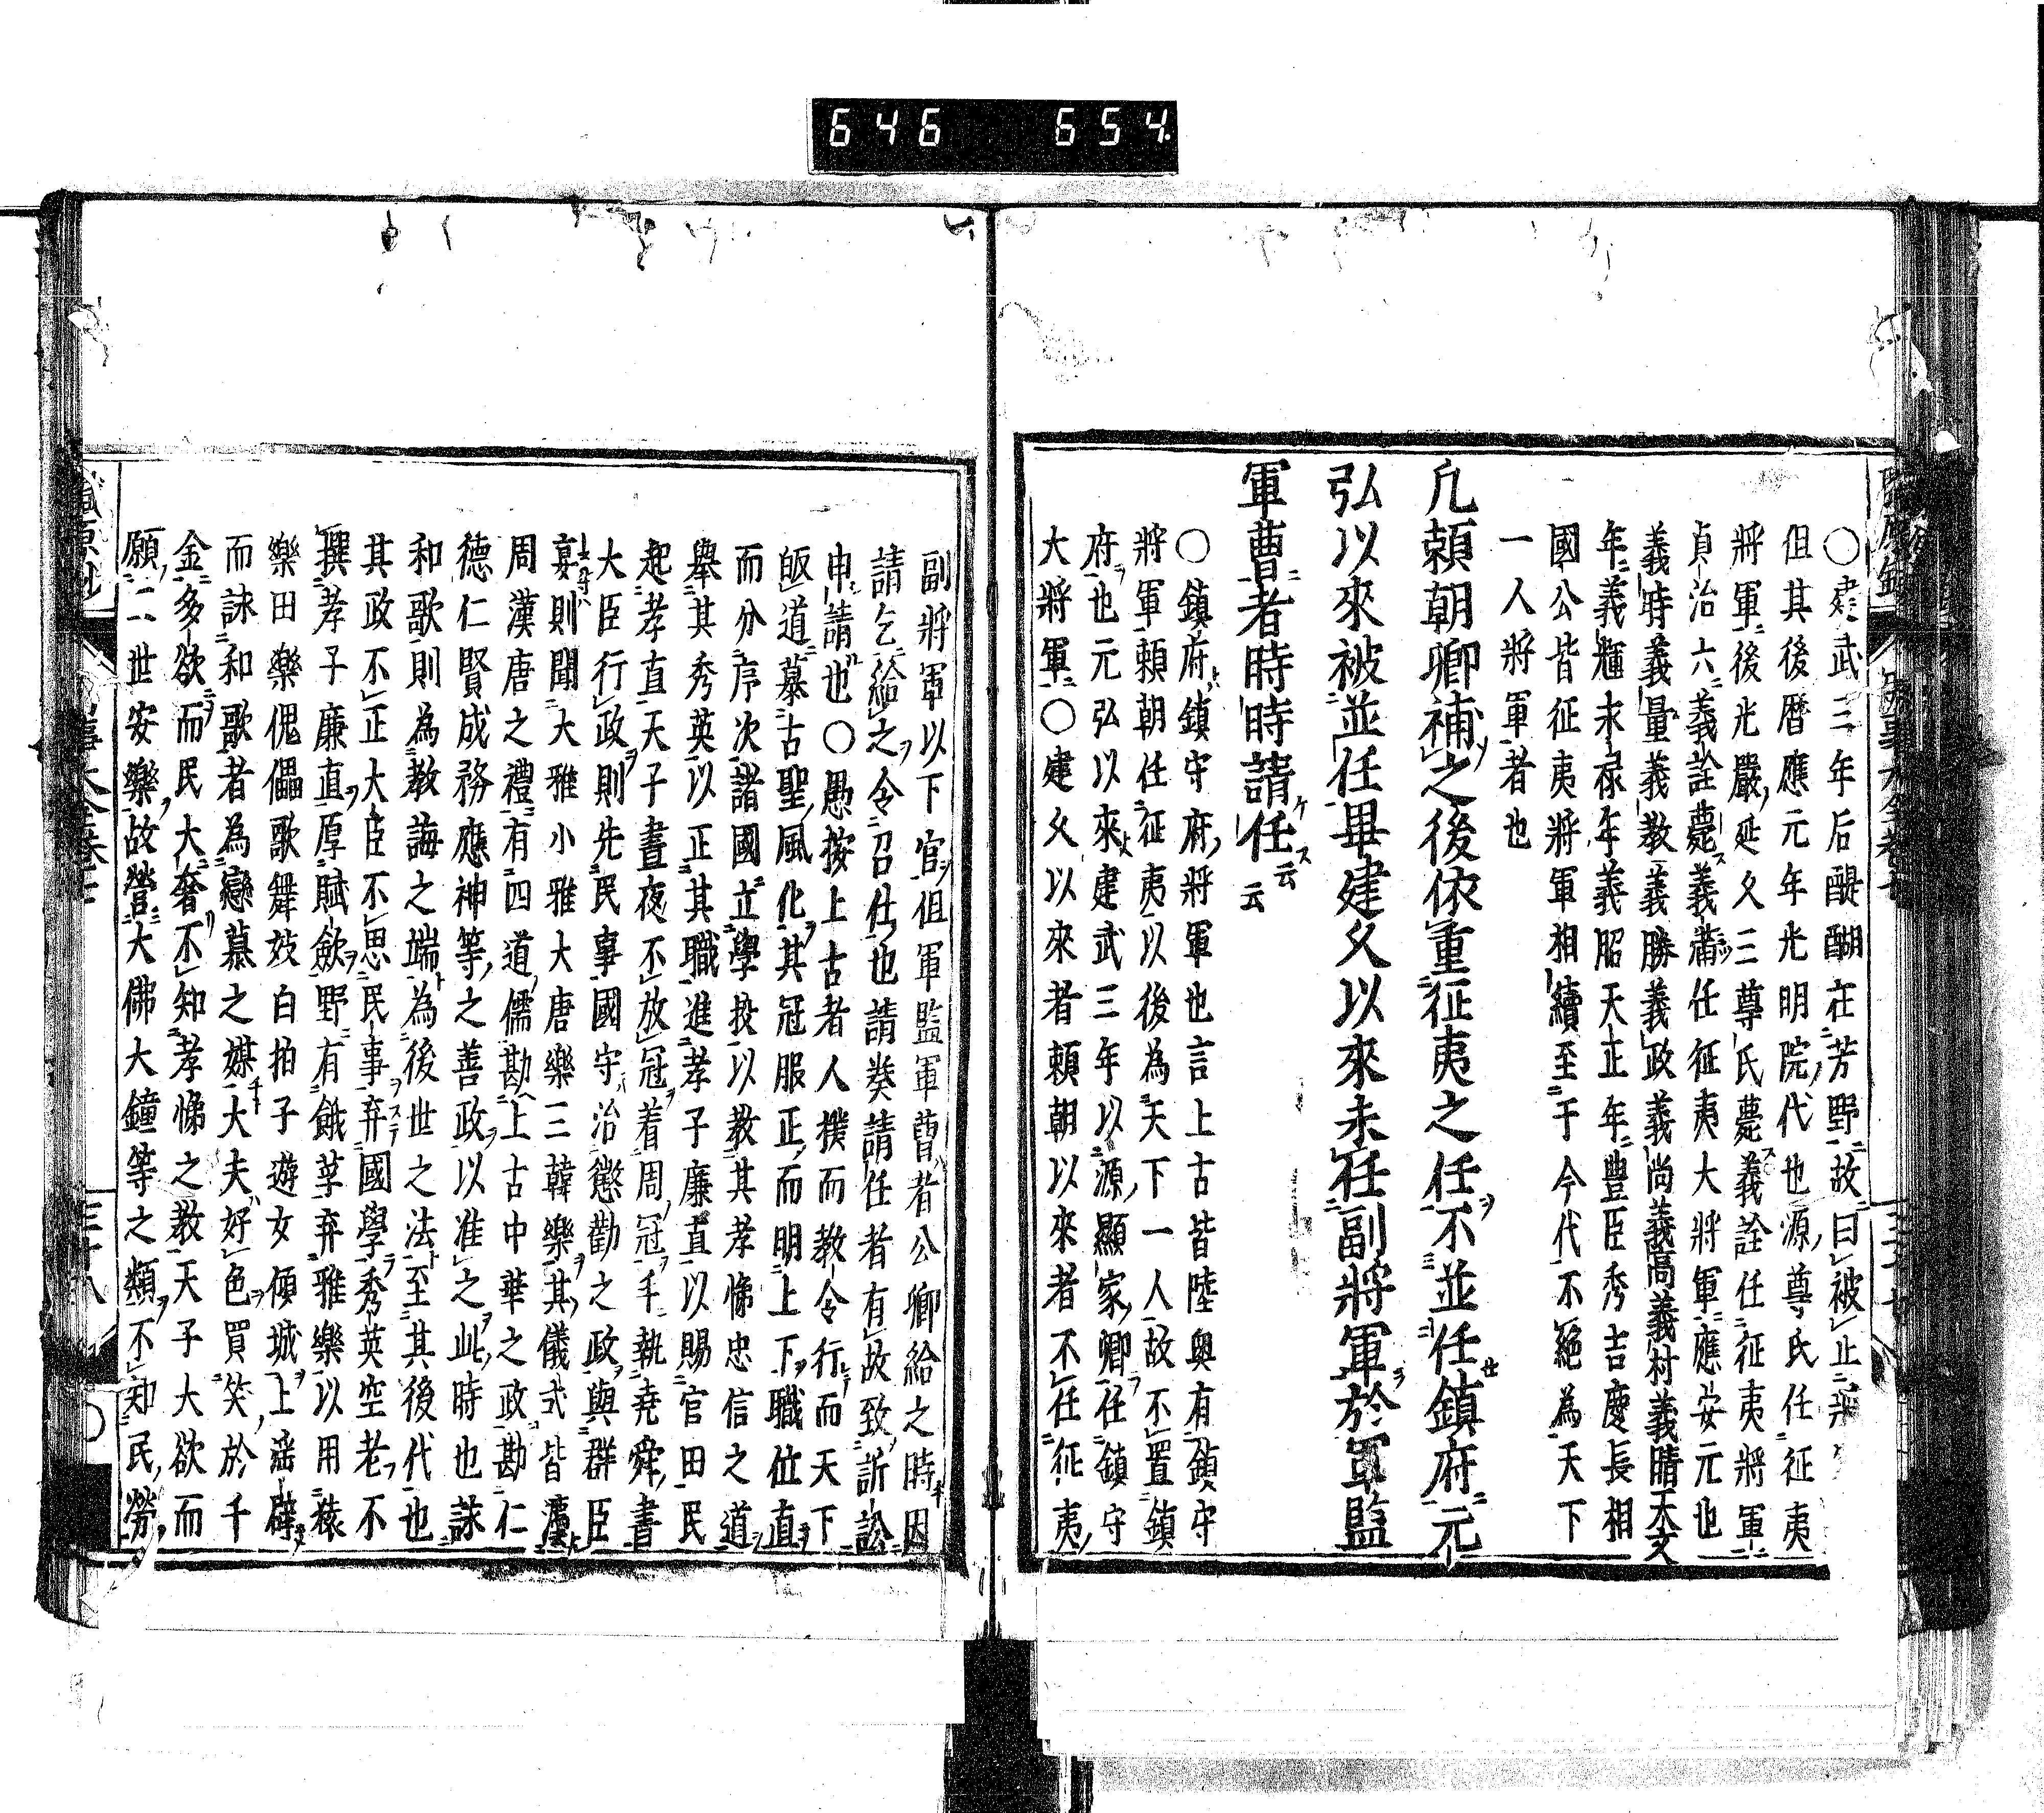 646 654
○建武三年后醍醐在芳野故曰被止
但其後暦應元年光明院代也源尊氏任征夷
將軍後光嚴延久三尊氏薨義詮任征夷將軍
貞治六義詮薨義滿任征夷大將軍應安元也
義時義量義教義勝義政義尚義高義村義晴天文
年義輝永禄年義昭天正年豊臣秀吉慶長相
國公皆征夷將軍相續至于今代不絕為天下
一人將軍者也
凡頼朝卿補之後依重征夷之任不並任鎮府元
弘以來被並任畢建久以來未任副將軍於軍監
軍曹者時時請任云云
○鎮府鎮守府將軍也言上古皆陸奥有鎮守
將軍頼朝任征夷以後為天下一人故不置鎮
府也元弘以來建武三年以源顯家卿任鎮守
大將軍○建久以來者頼朝以來者不任征夷
副將軍以下官但軍監軍曹者公卿給之時因
請乞給之令召仕也請奏請任者有故致訴訟
申請也○愚按上古者人撲而教令行而天下
皈道慕古聖風化其冠服正而明上下職位直
而分序次諸國立學挍以教其孝悌忠信之道
舉其秀英以正其職進孝子廉直以賜官田民
起孝直天子晝夜不放冠着周冠手執堯舜書
大臣行政則先民事國守治懲勸之政與群臣
宴則聞大雅小雅大唐樂三韓樂其儀式皆遵
周漢唐之禮有四道儒勘上古中華之政勘仁
德仁賢成務應神等之善政以准之此時也詠
和歌則為教誨之端為後世之法至其後代也
其政不正大臣不思民事弃國學秀英空老不
撰孝子廉直厚賦歛野有餓莩弃雅樂以用猿
樂田樂傀儡歌舞妓白拍子遊女傾城上滛僻
而詠和歌者為戀慕之媒大夫好色買笑於千
金多欲而民大奢不知孝悌之教天子大欲而
願二世安樂故營大佛大鐘等之類不知民勞